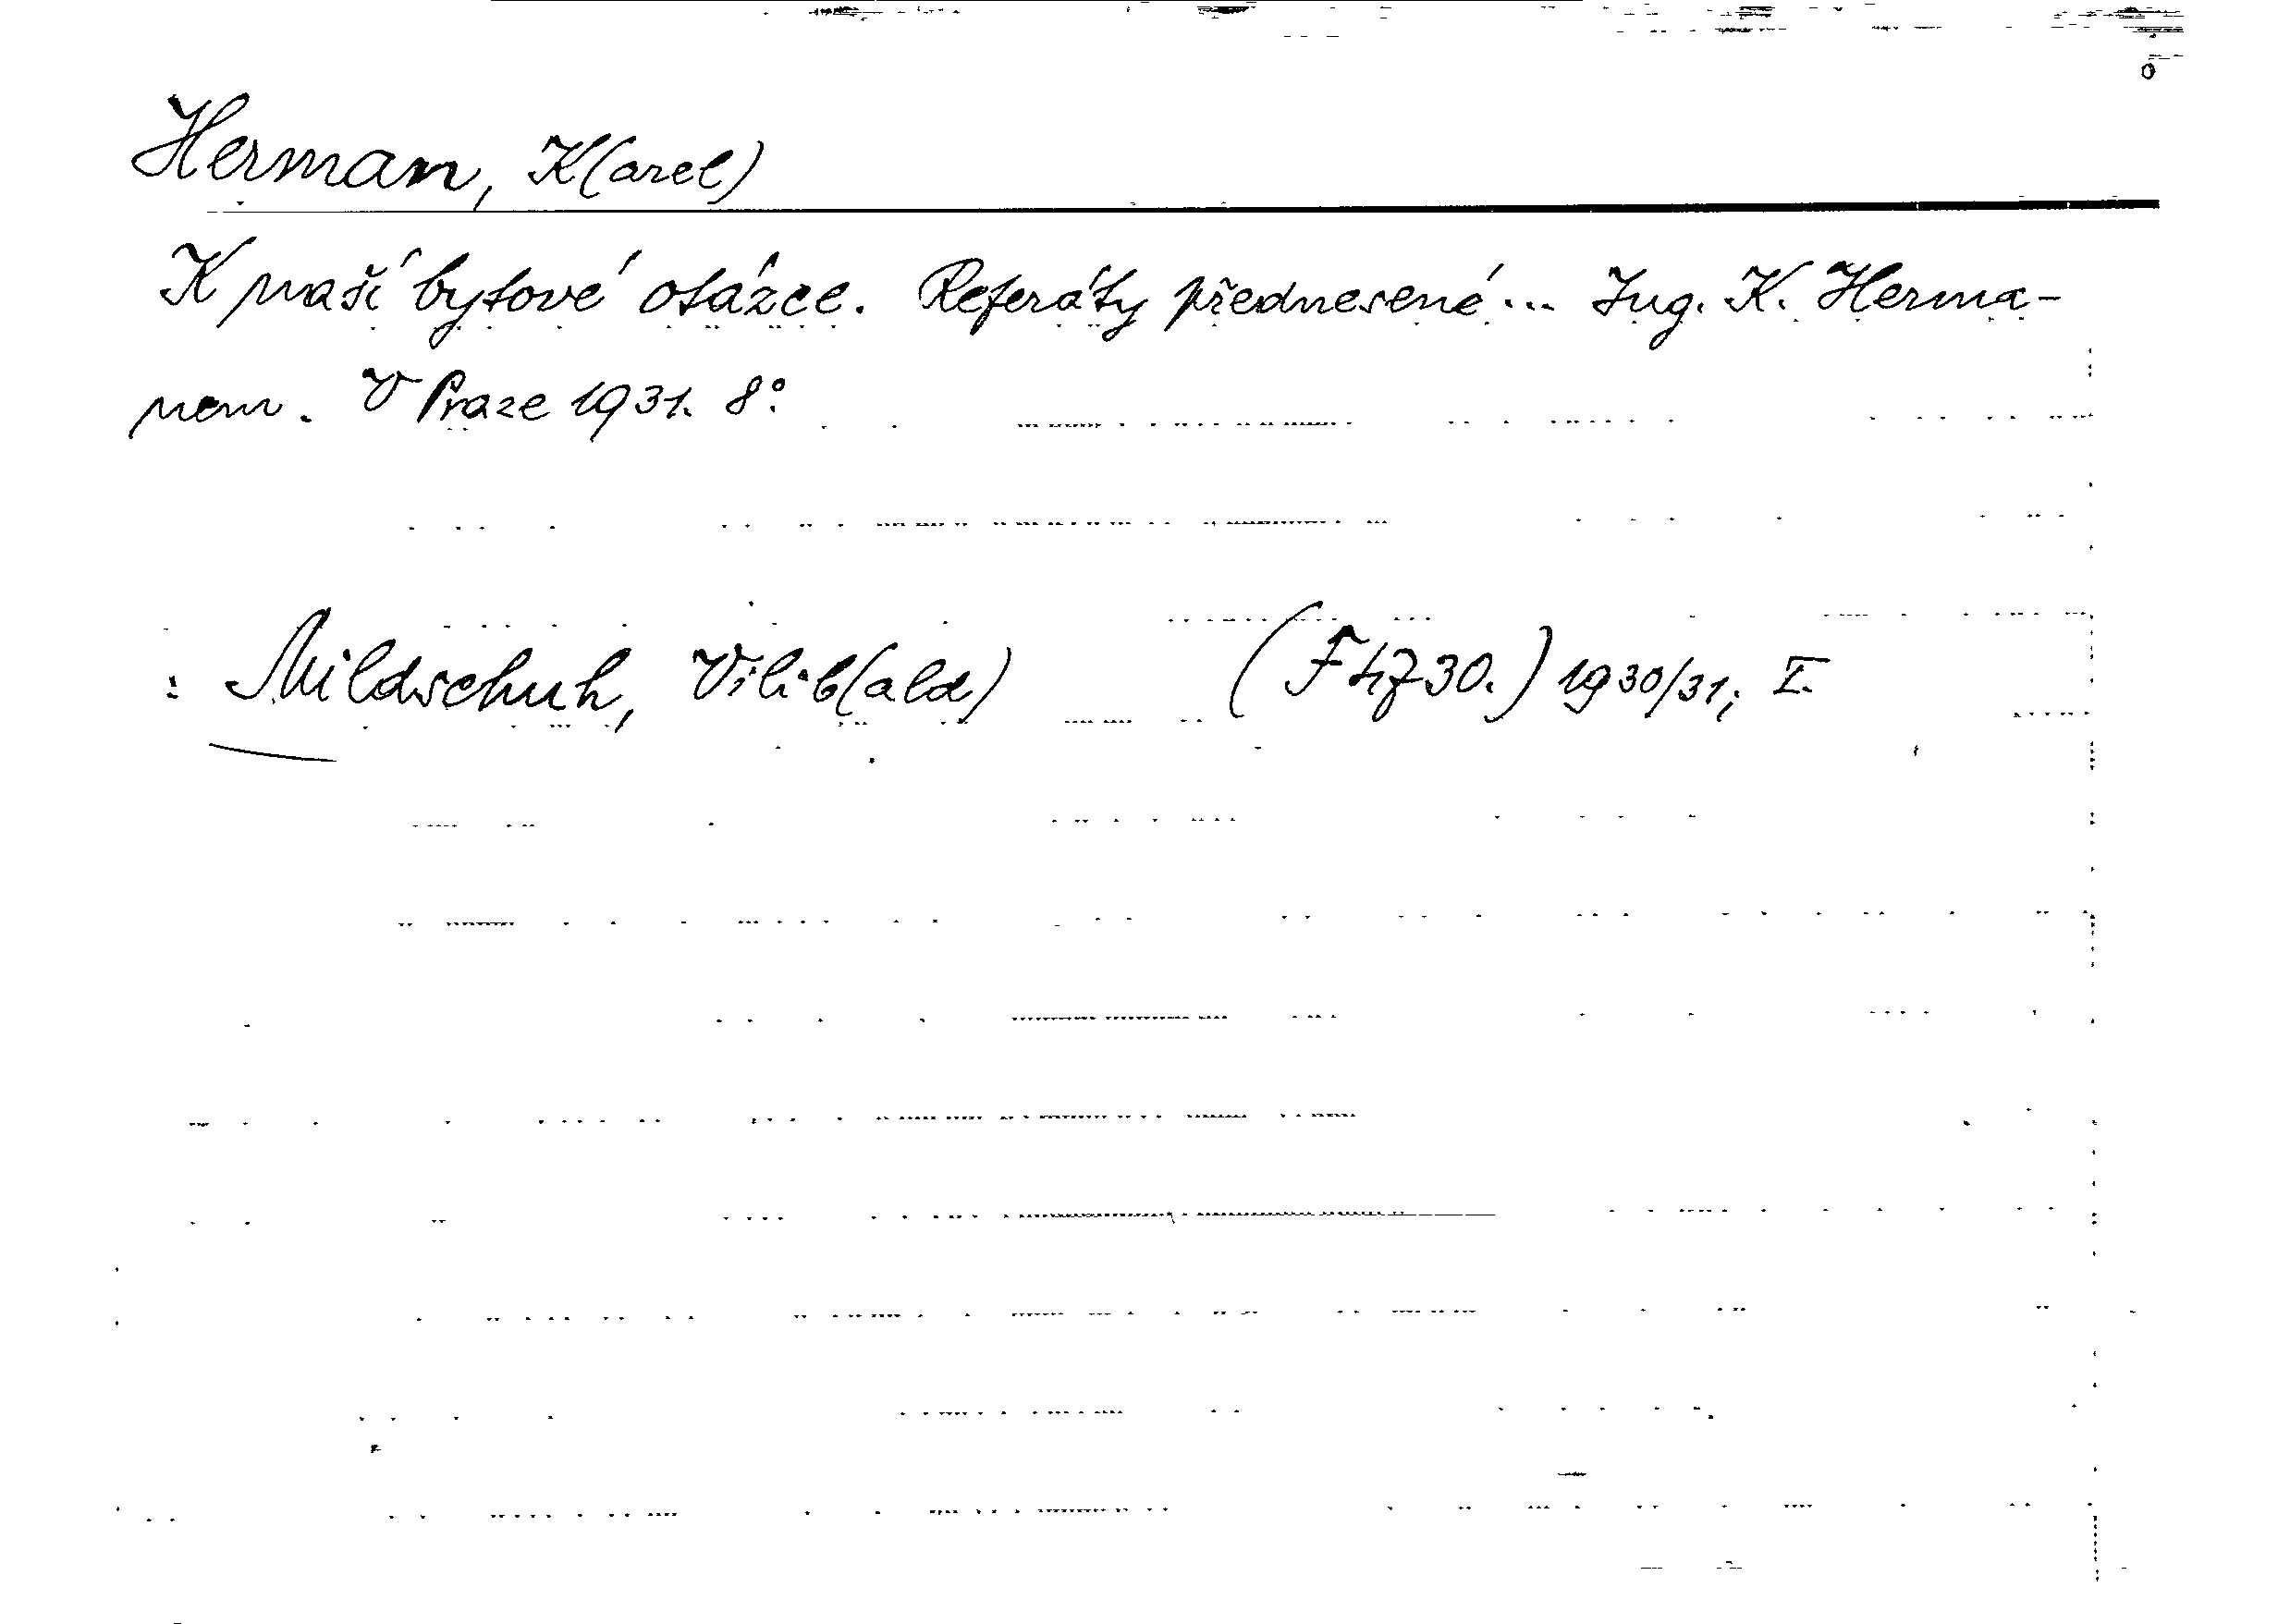 Herman, K(arel)
K naší bytové otázce. Referáty přednesené... Ing. K. Herma-
nem. V Praze 1931. 8°.
: Mildschuh, Vilib(ald) 30.) 1930/31; I.